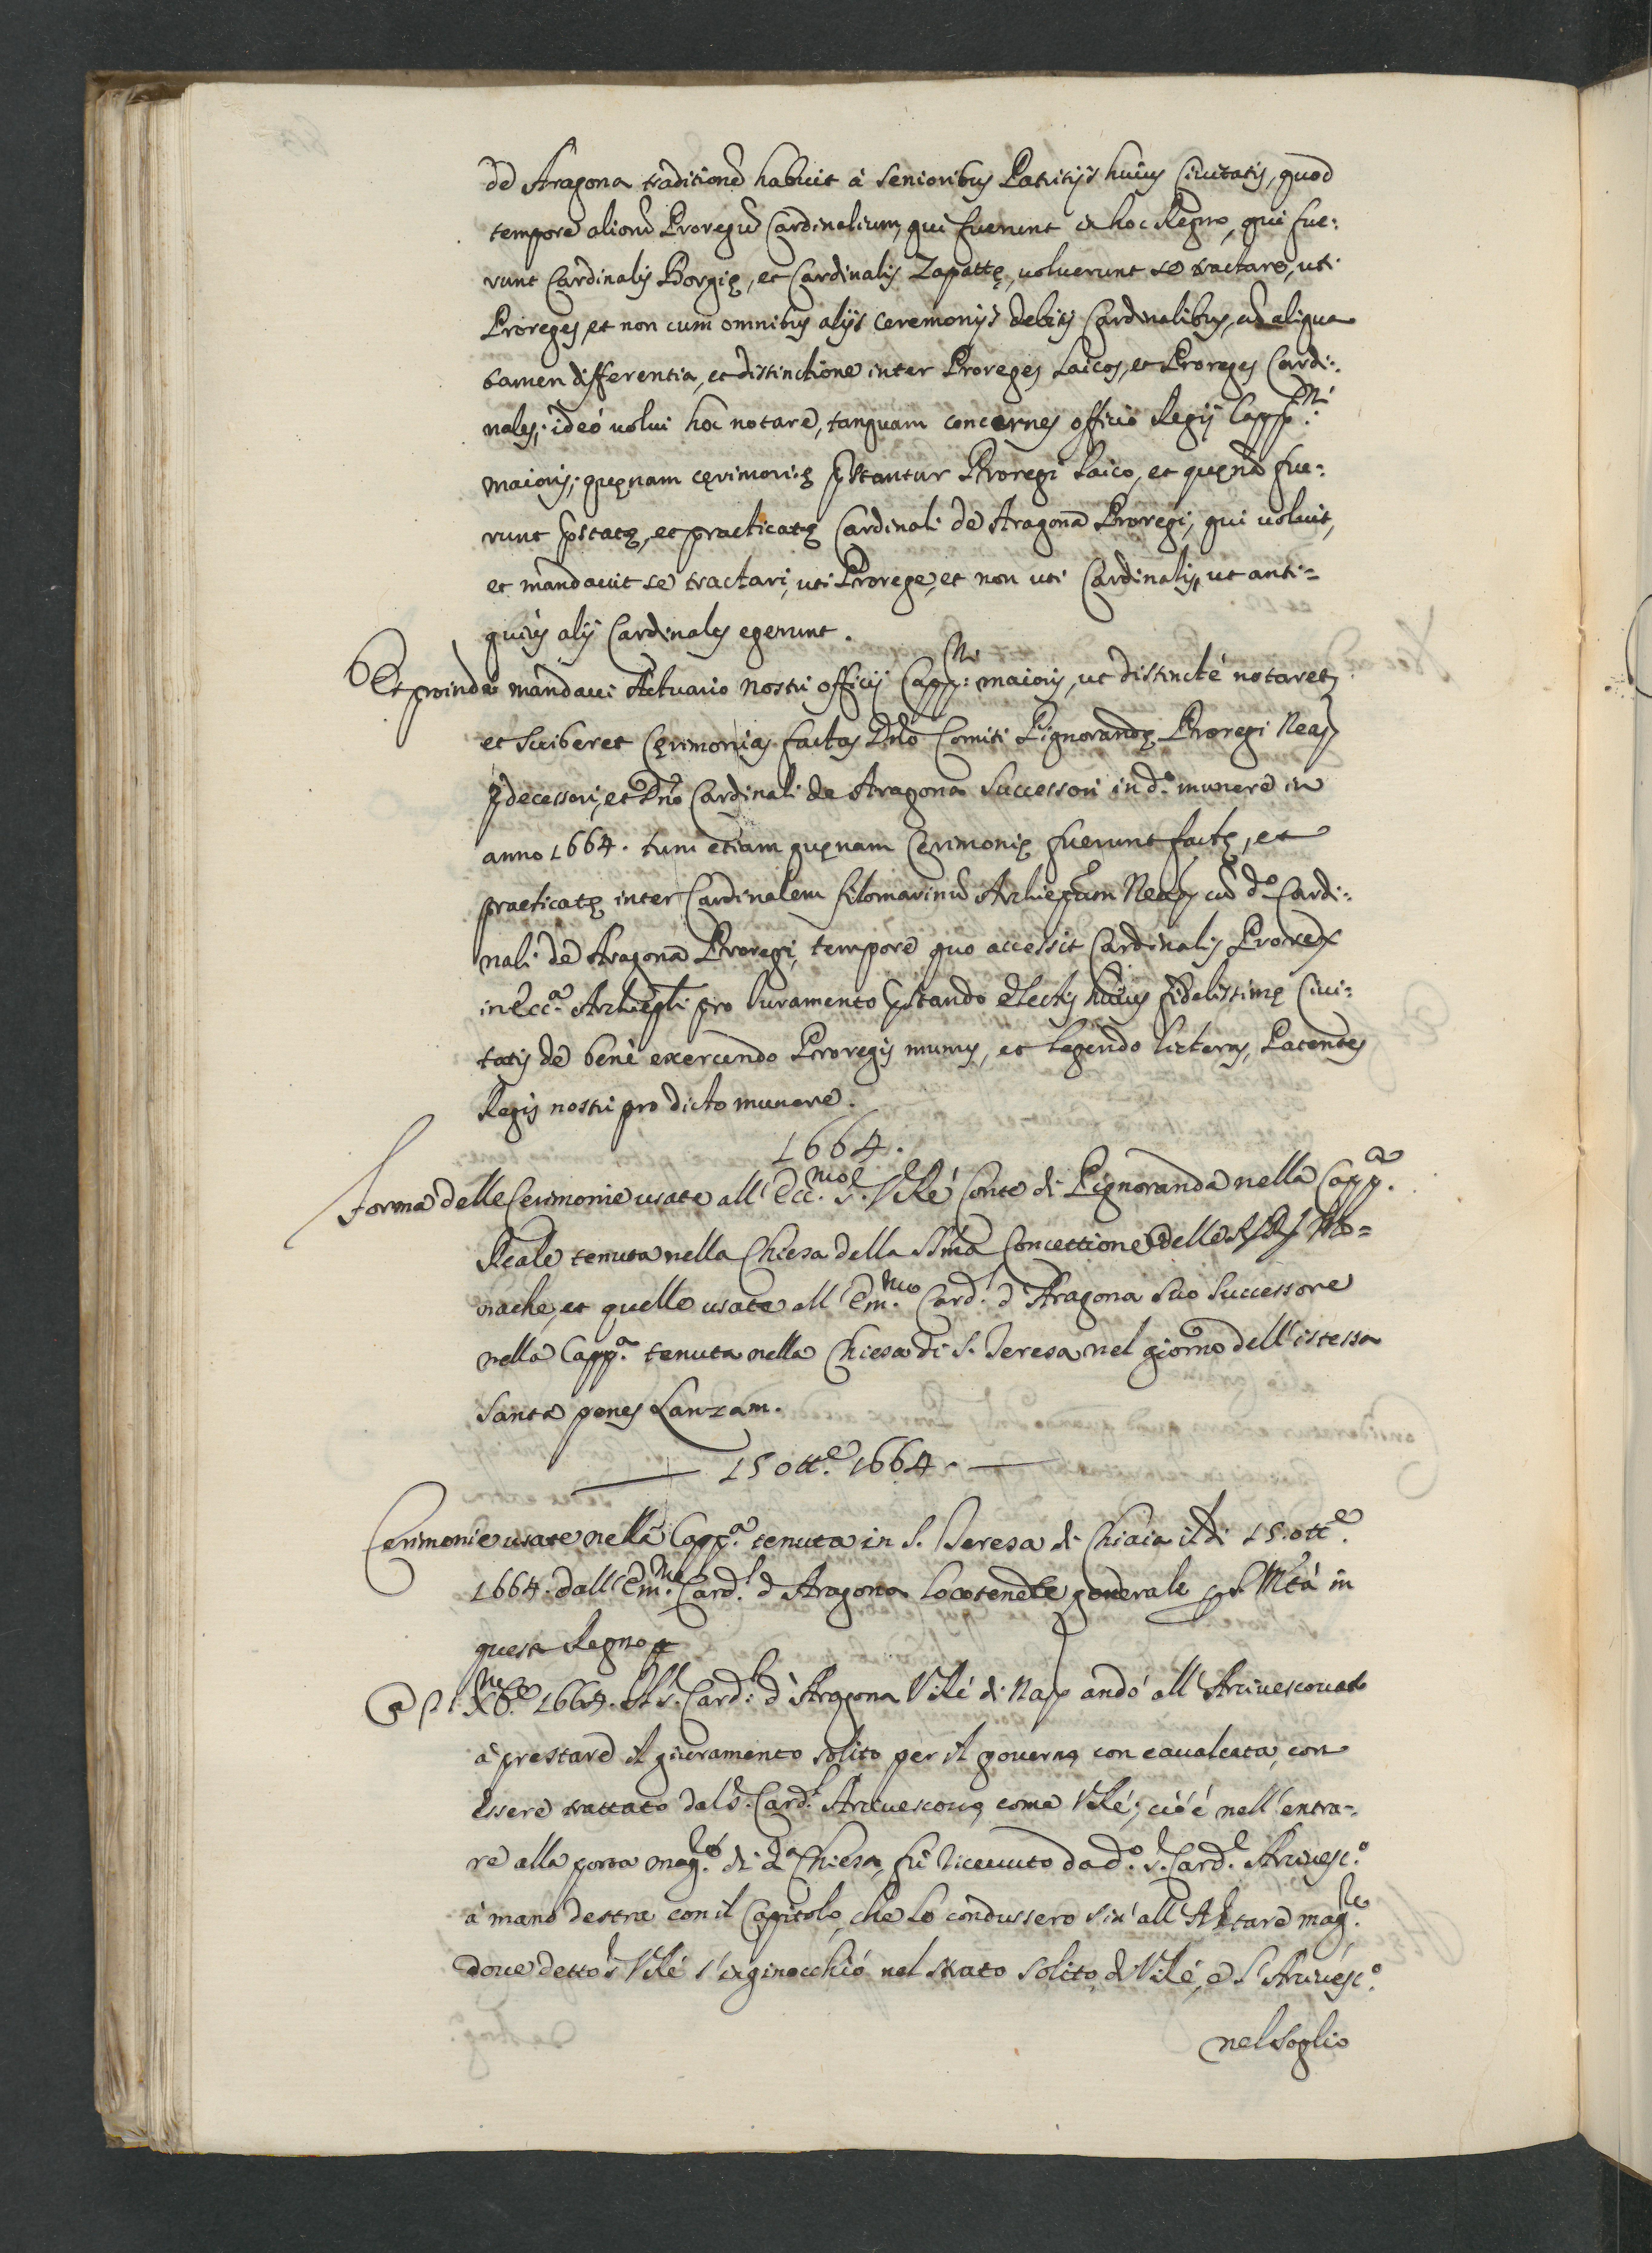 de Aragona traditionẽ habuit á senioribus Patritijs huius Ciuitatis, quod
tempore aliorũ Proregũ Cardinalium, qui fuerunt in hoc Regno, qui fue:
runt Cardinalis Borgię, et Cardinalis Zapattę, uoluerunt se tractare, uti
Proreges, et non cum omnibus alijs ceremonijs debitis Cardinalibus, cũ aliqua
tamen differentia, et distinctione inter Proreges Laicos, et Proreges Cardi:
nales; ideó uolui hoc notare, tanquam concernes officio Regij Capp.ni
maioris; quęnam cęrimonię pstantur Proregi Laico, et quęnã fue:
runt pstatę, et practicatę Cardinali de Aragona Proregi, qui uoluit,
et mandauit se tractari, uti Prorege, et non uti Cardinalis, ut anti=
quiús alij Cardinales egerunt.
Et proinde mandaui Actuario nostri officij Capp:ni maioris, ut distincté notaret,
et scriberet Cęrimonias factas Dño Comiti Pignorandę Proregi Neap
pdecessori, et Dño Cardinali de Aragona successori in d.o munere in
anno 1664. tum etiam quęnam Cęrimonię fuerunt factę, et
practicatę inter Cardinalem filomarinũ Archiepũm Neap cũ d.o Cardi:
nali de Aragona Proregi, tempore quo accessit Cardinalis Prorex
in Ecc.a Archiepli pro Iuramento pstando electis huius fidelissimę Ciui:
tatis de bené exercendo Proregis munus, et legendo licteras Patentes
Regis nostri pro dicto munere.
1664.
Forma delle Cerimonie usate all' Ecc.mo S.r V Ré Conte di Pignoranda nella Capp.a
Reale tenuta nella Chiesa della SSma Concettione delle RR Mo=
nache, et quelle usate all' Em.mo Card.l d'Aragona suo successore
nella Capp.a tenuta nella Chiesa di S. Teresa nel giorno dell' istessa
Santa penes Lanzam.
15 ott.e 1664.
Cerimonie usate nella Capp.a tenuta in S. Teresa di Chiaia il di 15. ott.e
1664. dall' Em.mo Card.l d'Aragona locotenete generale p S. Mtá in
questo Regno
Xb.e 1664. Il S.r Card.l d'Aragona V Ré di Nap andó all' Arciuescouato
á prestare il giuramento solito per il gouerno, con caualcata, con
essere trattato dal S.r Card.l Arciuescouo, come V Ré; cioé nell' entra:
re alla porta mag.re di d.a Chiesa, fú riceuuto da d.o S.r Card.l Arciuesc.o
á mano destra con il Capitolo, che lo condussero sin' all' Altare mag.re
doue detto S.r V Ré s' inginocchió nel strato solito di V Ré, e l' Arciuesc.o
nel soglio